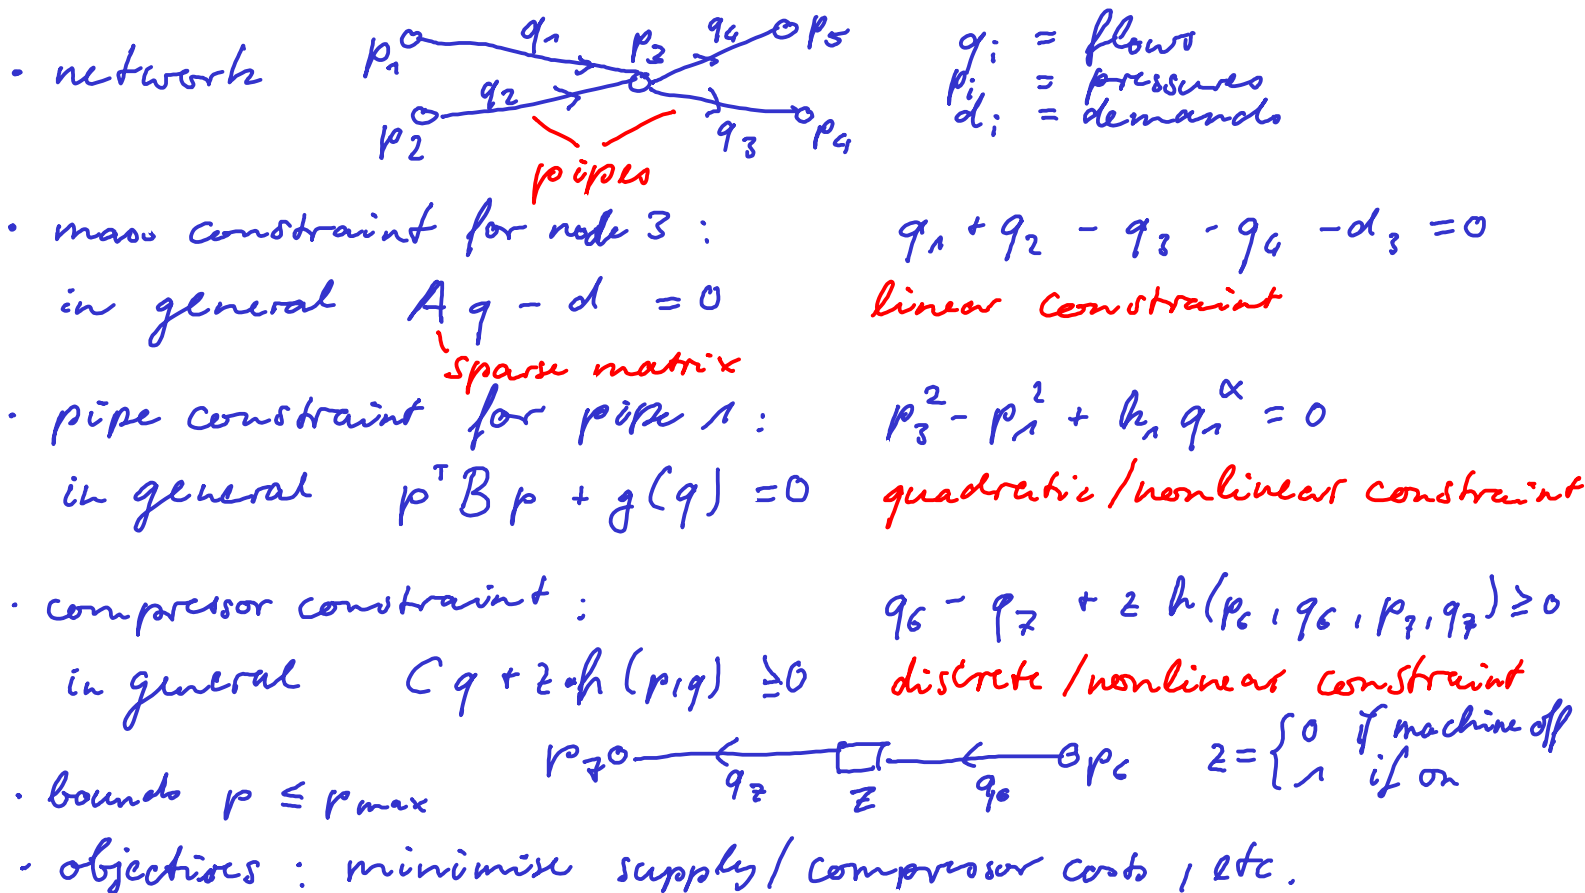 · network p₁ q₁ p₃ q₄ p₅ qᵢ = flows
p₂ q₂ q₃ p₄ pᵢ = pressures
pipes dᵢ = demands
· mass constraint for node 3 : q₁ + q₂ - q₃ - q₄ - d₃ = 0
in general A q - d = 0 linear constraint
sparse matrix
· pipe constraint for pipe 1 : p₃² - p₁² + k₁ q₁^α = 0
in general pᵀBp + g(q) = 0 quadratic/nonlinear constraint
· compressor constraint : q₆ - q₇ + z h(p₆, q₆, p₇, q₇) ≥ 0
in general Cq + z·h(p,q) ≥ 0 discrete/nonlinear constraint
p₇ q₇ z q₆ p₆ z = { 0 if machine off
1 if on
· bounds p ≤ pmax
· objectives : minimise supply/compressor costs, etc.